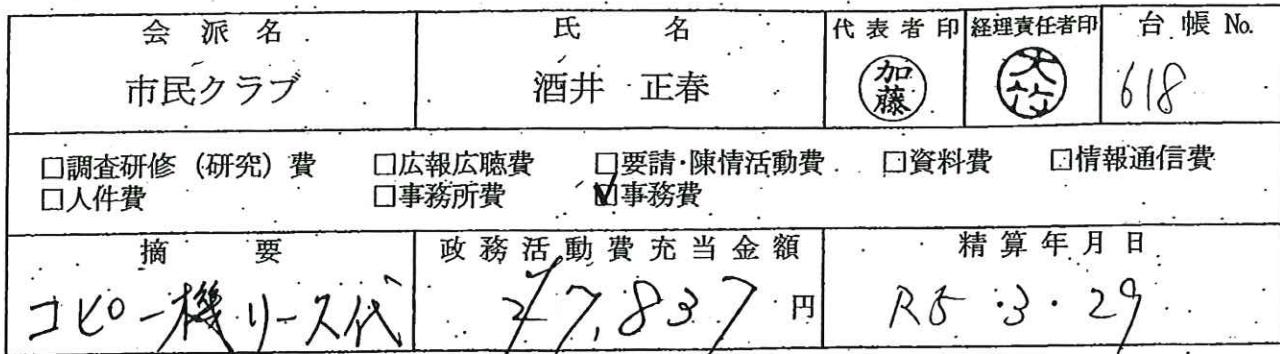 会派名 氏名 代表者印 経理責任者印 台帳 No.
市民クラブ 酒井 正春 加藤 大竹 618
□調査研修（研究）費 □広報広聴費 □要請・陳情活動費 □資料費 □情報通信費
□人件費 □事務所費 ☑事務費
摘要 政務活動費充当金額 精算年月日
コピー機リース代 7,837 円 R5・3・29